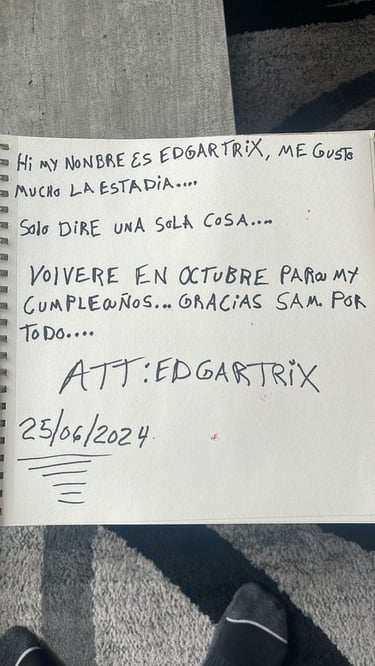 Hi MY NONBRE ES EDGARTRiX, ME GUSTO
MUCHO LA ESTADiA....
Solo DIRE UNA SOLA COSA....
VOlVERE EN OCTUBRE PARA MY
CUMPLEAÑOS... GRACiAS SAM. POR
TODO....
ATT: EDGARTRiX
25/06/2024